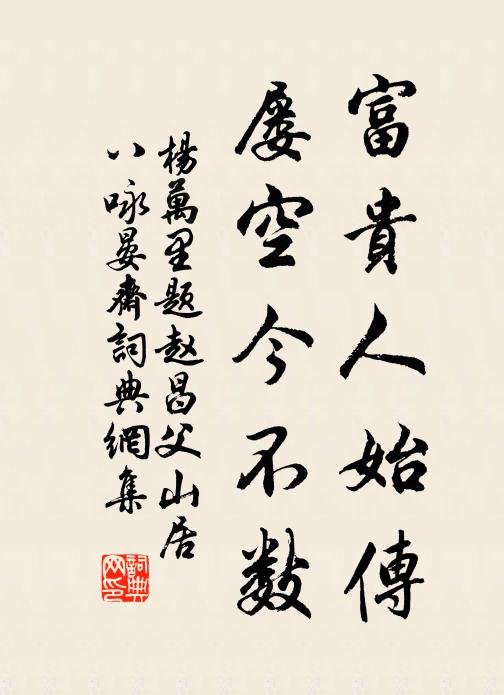 富貴人始傳
屢空今不数
楊萬里題赵昌父山居
八咏晏齋詞典網集
詞典网印